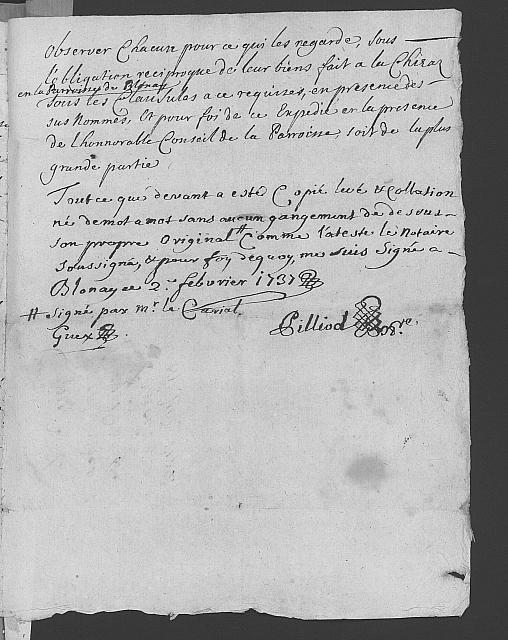 Observer Chacune pour ce qui les regarde, sous
l'obligation reciproque de leur biens fait a la Chiraz
en la Parroisse de Blonay
sous les Clausules a ce requises, en presence des
sus Nommes, Et pour foi de ce Expedié en la presence
de l'honnorable Conseil de la Parroisse, soit de la plus
grande partie
Tout ce que devant a esté Copié leué & Collation
né demot a mot sans aucun gangement de dessous
son propre Original # Comme l'ateste le Notaire
soussigné, & pour foy dequoy, me suis signé a
Blonay ce 2e febvrier 1737
# Signé par mr. le Curial
Guex
Pilliod